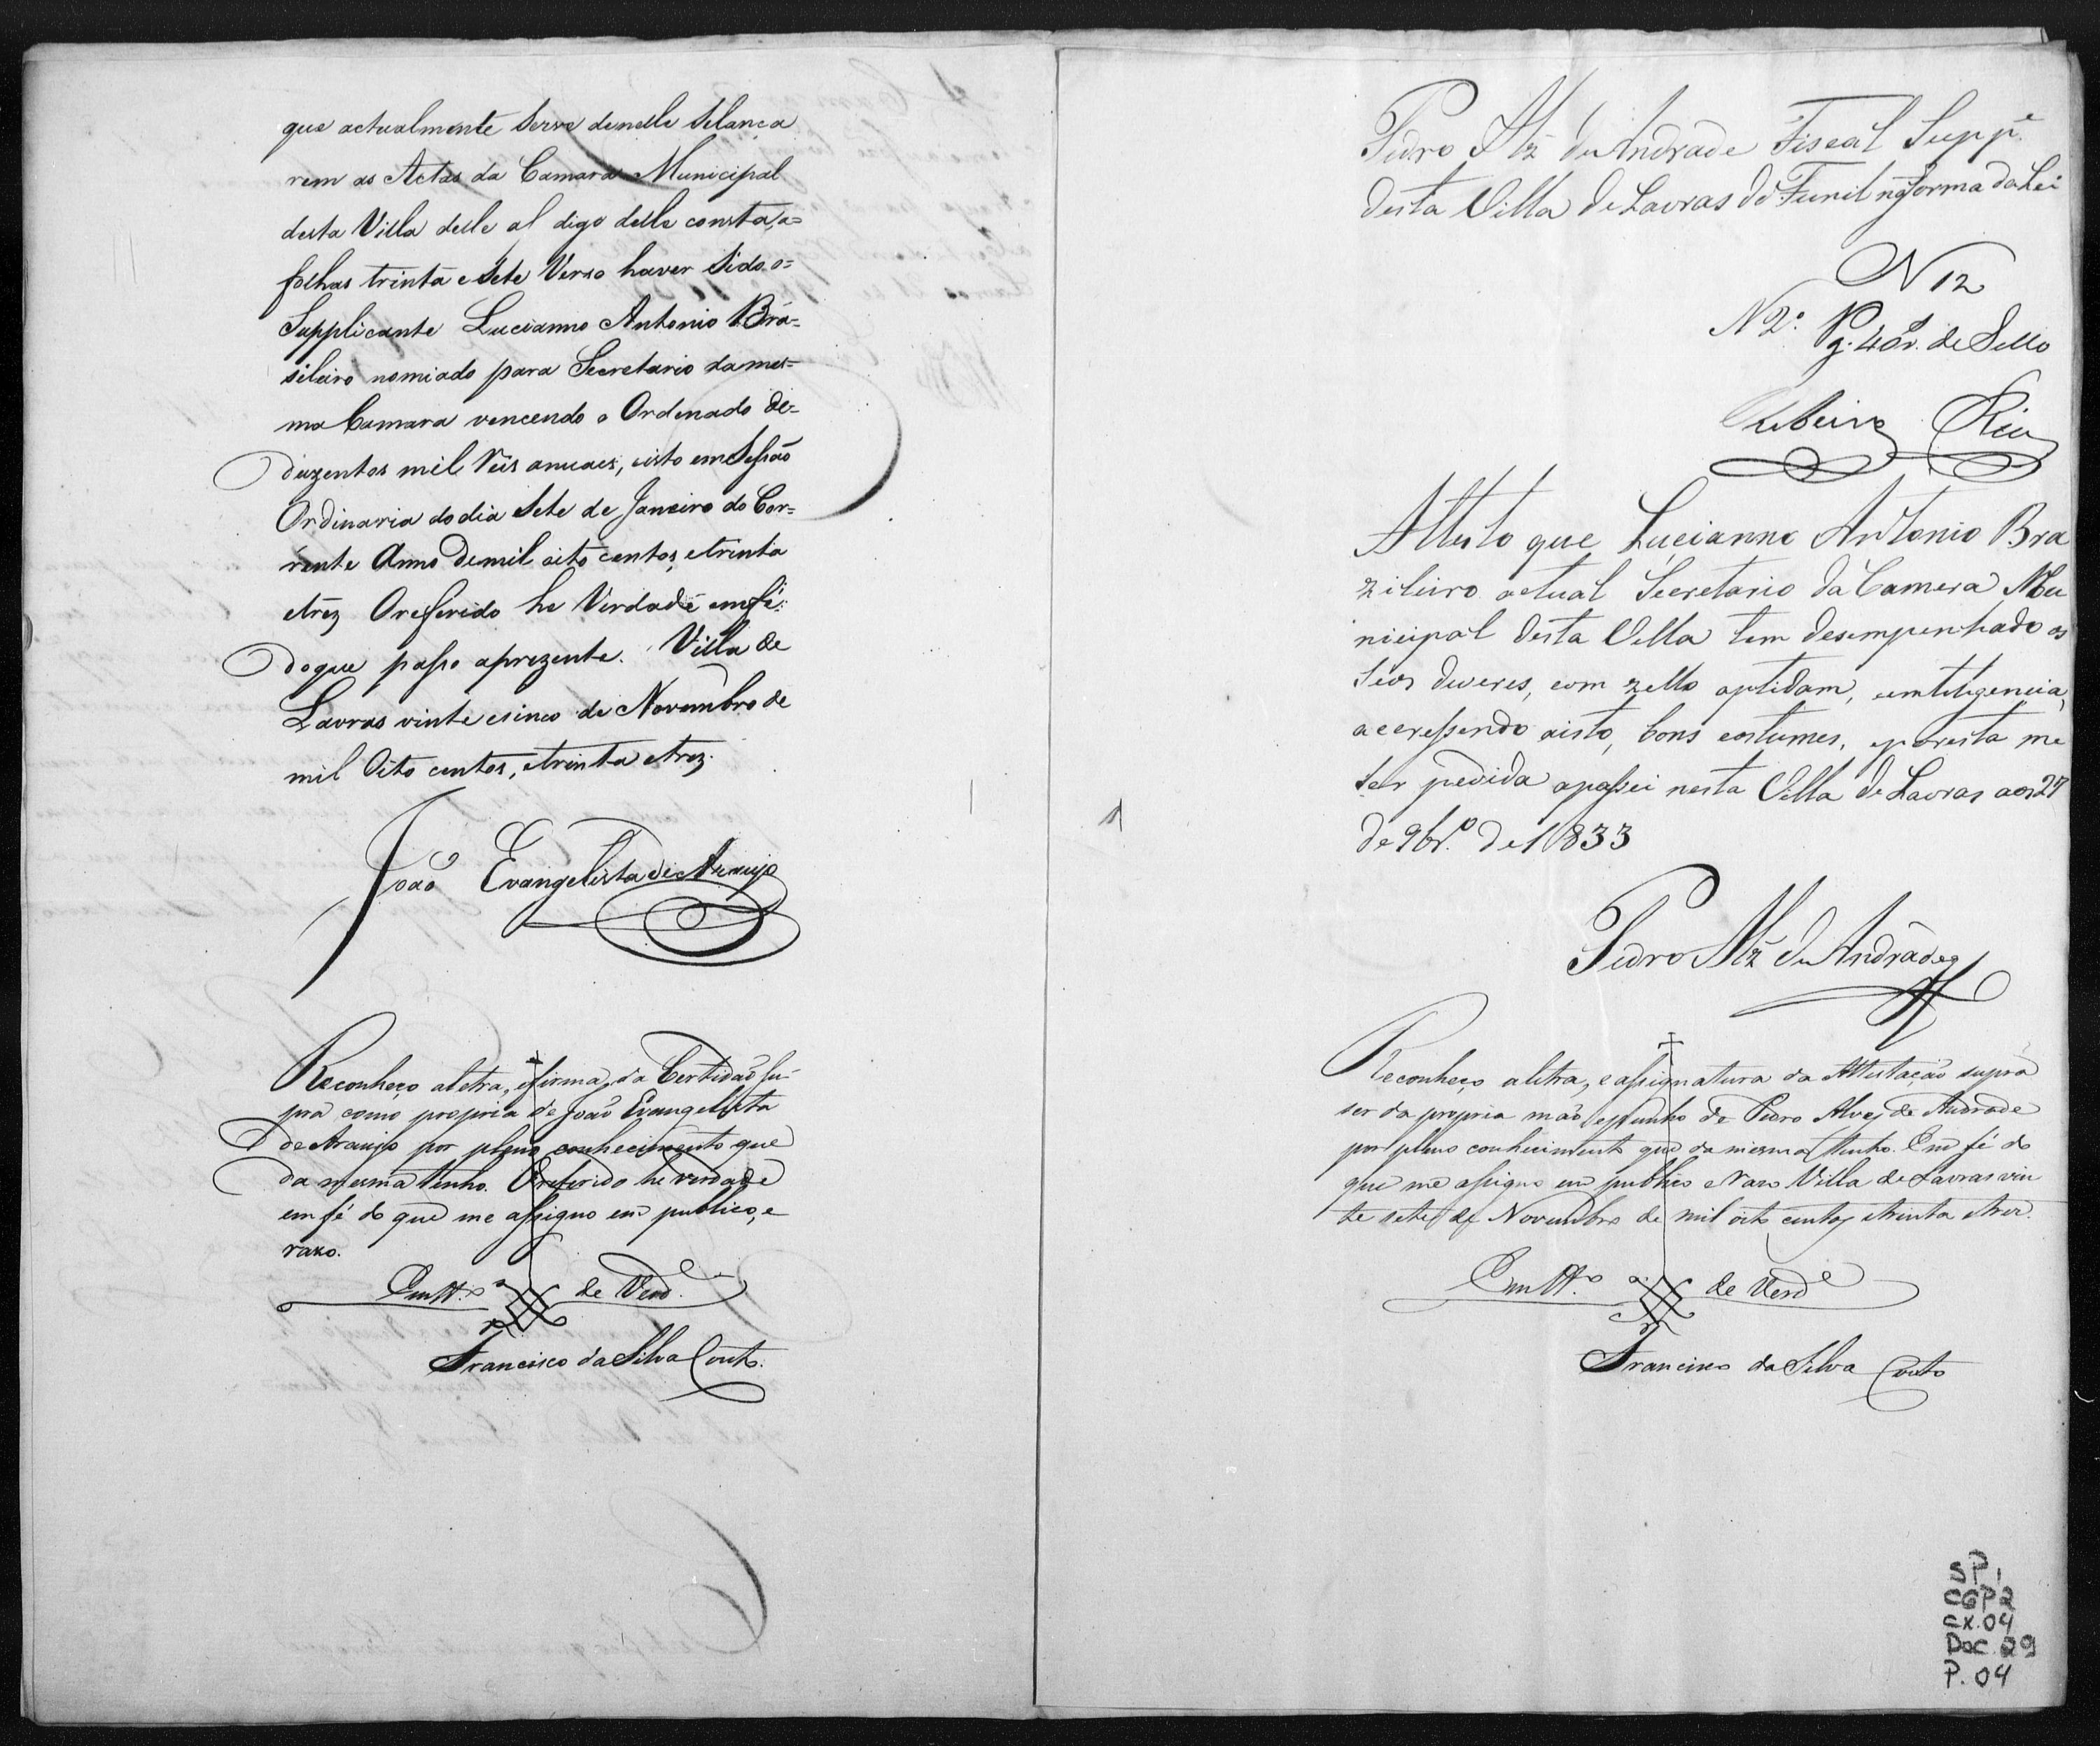 que actualmente serve denelle selança
rem as Actas da Camara Municipal
desta Villa delle al digo delle consta, a=
folhas trinta e Sete Verso haver Sido o=
Supplicante Lucianno Antonio Bra=
sileiro nomiado para Secretario da mes=
ma Camara vencendo o Ordenado de=
duzentos mil Reis anuaes, isto em Sessão
Ordinaria do dia Sete de Janeiro do Cor=
rente Anno de mil oito centos, e trinta
e trez O referido he Verdade em fé
do que passo a prezente. Villa de
Lavras vinte e sinco de Novembro de
mil Oito centos, e trinta e trez.
João Evangelista de Araujo
Reconheço a letra, e firma da Certidão su-
pra como propria de João Evangelista
de Araujo por pleno conhecimento que
da mesma tenho. O referido he verdade
em fé do que me assigno em publico, e
razo.
Em tt.º de Verd.e
Francisco da Silva Couto.
Pedro Alz' de Andrade Fiscal Supp.e
desta Villa de Lavras do Funil na forma da Lei
N 12
N 2.º Pg. 40 r. de Sello
Ribeiro
Attesto que Lucianno Antonio Bra
zileiro actual Secretario da Camera Mu
nicipal desta Villa tem desempenhado os
seos deveres, com zello aptidam, e intiligencia,
acressendo aisto, bons costumes, e por esta me
ser pedida a passei nesta Villa de Lavras aos 27
de 9br.º de 1833
Pedro Alz' de Andrade
Reconheço a letra, e assignatura da Attestação supra
ser da propria mão, e punho de Pedro Alves de Andrade
por pleno conhecimento que da mesma tenho. Em fé do
que me assigno em publico e razo Villa de Lavras vin
te sete de Novembro de mil oito centos e trinta e trez.
Em tt.º de Verd.e
Francisco da Silva Couto
SP 1
CGP2
CX.04
Doc. 29
P. 04